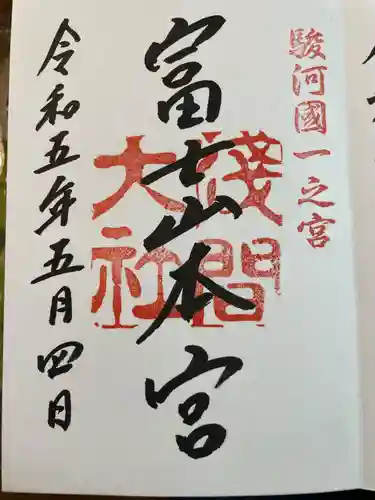 駿河國一之宮
富士山本宮
淺間大社
令和五年五月四日